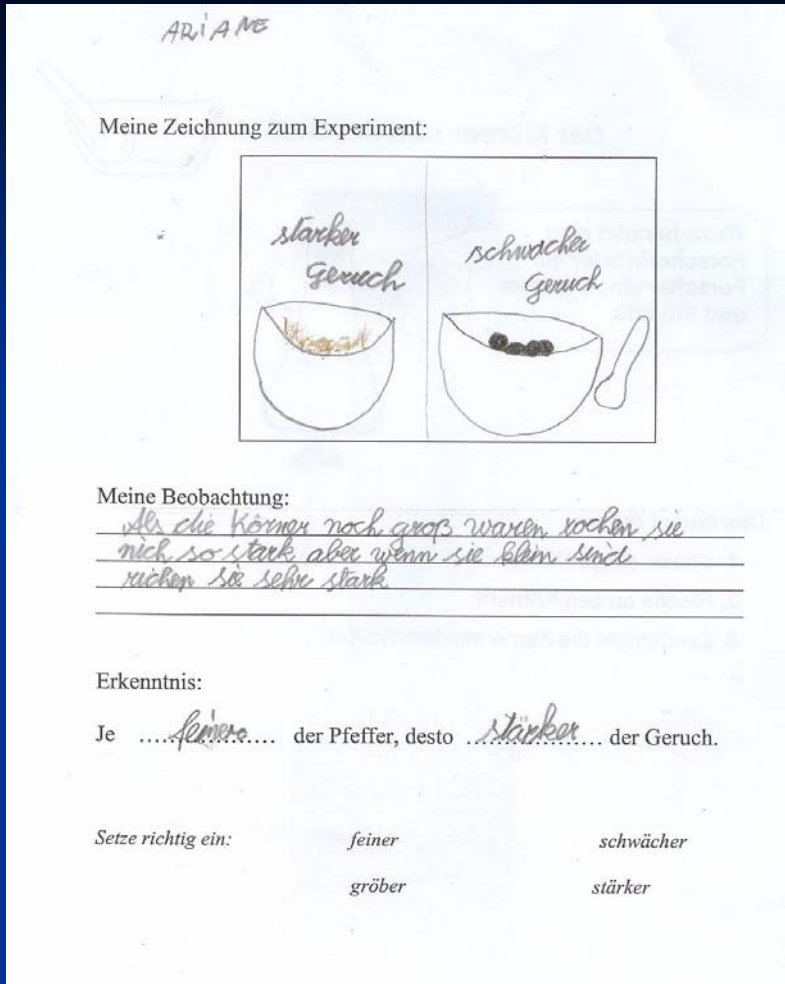 ARiANE
Meine Zeichnung zum Experiment:
starker
Geruch
schwacher
Geruch
Meine Beobachtung:
Als die Körner noch groß waren rochen sie
nich so stark aber wenn sie klein sind
richen sie sehr stark
Erkenntnis:
Je ....feiner.... der Pfeffer, desto ....stärker.... der Geruch.
Setze richtig ein: feiner schwächer
gröber stärker